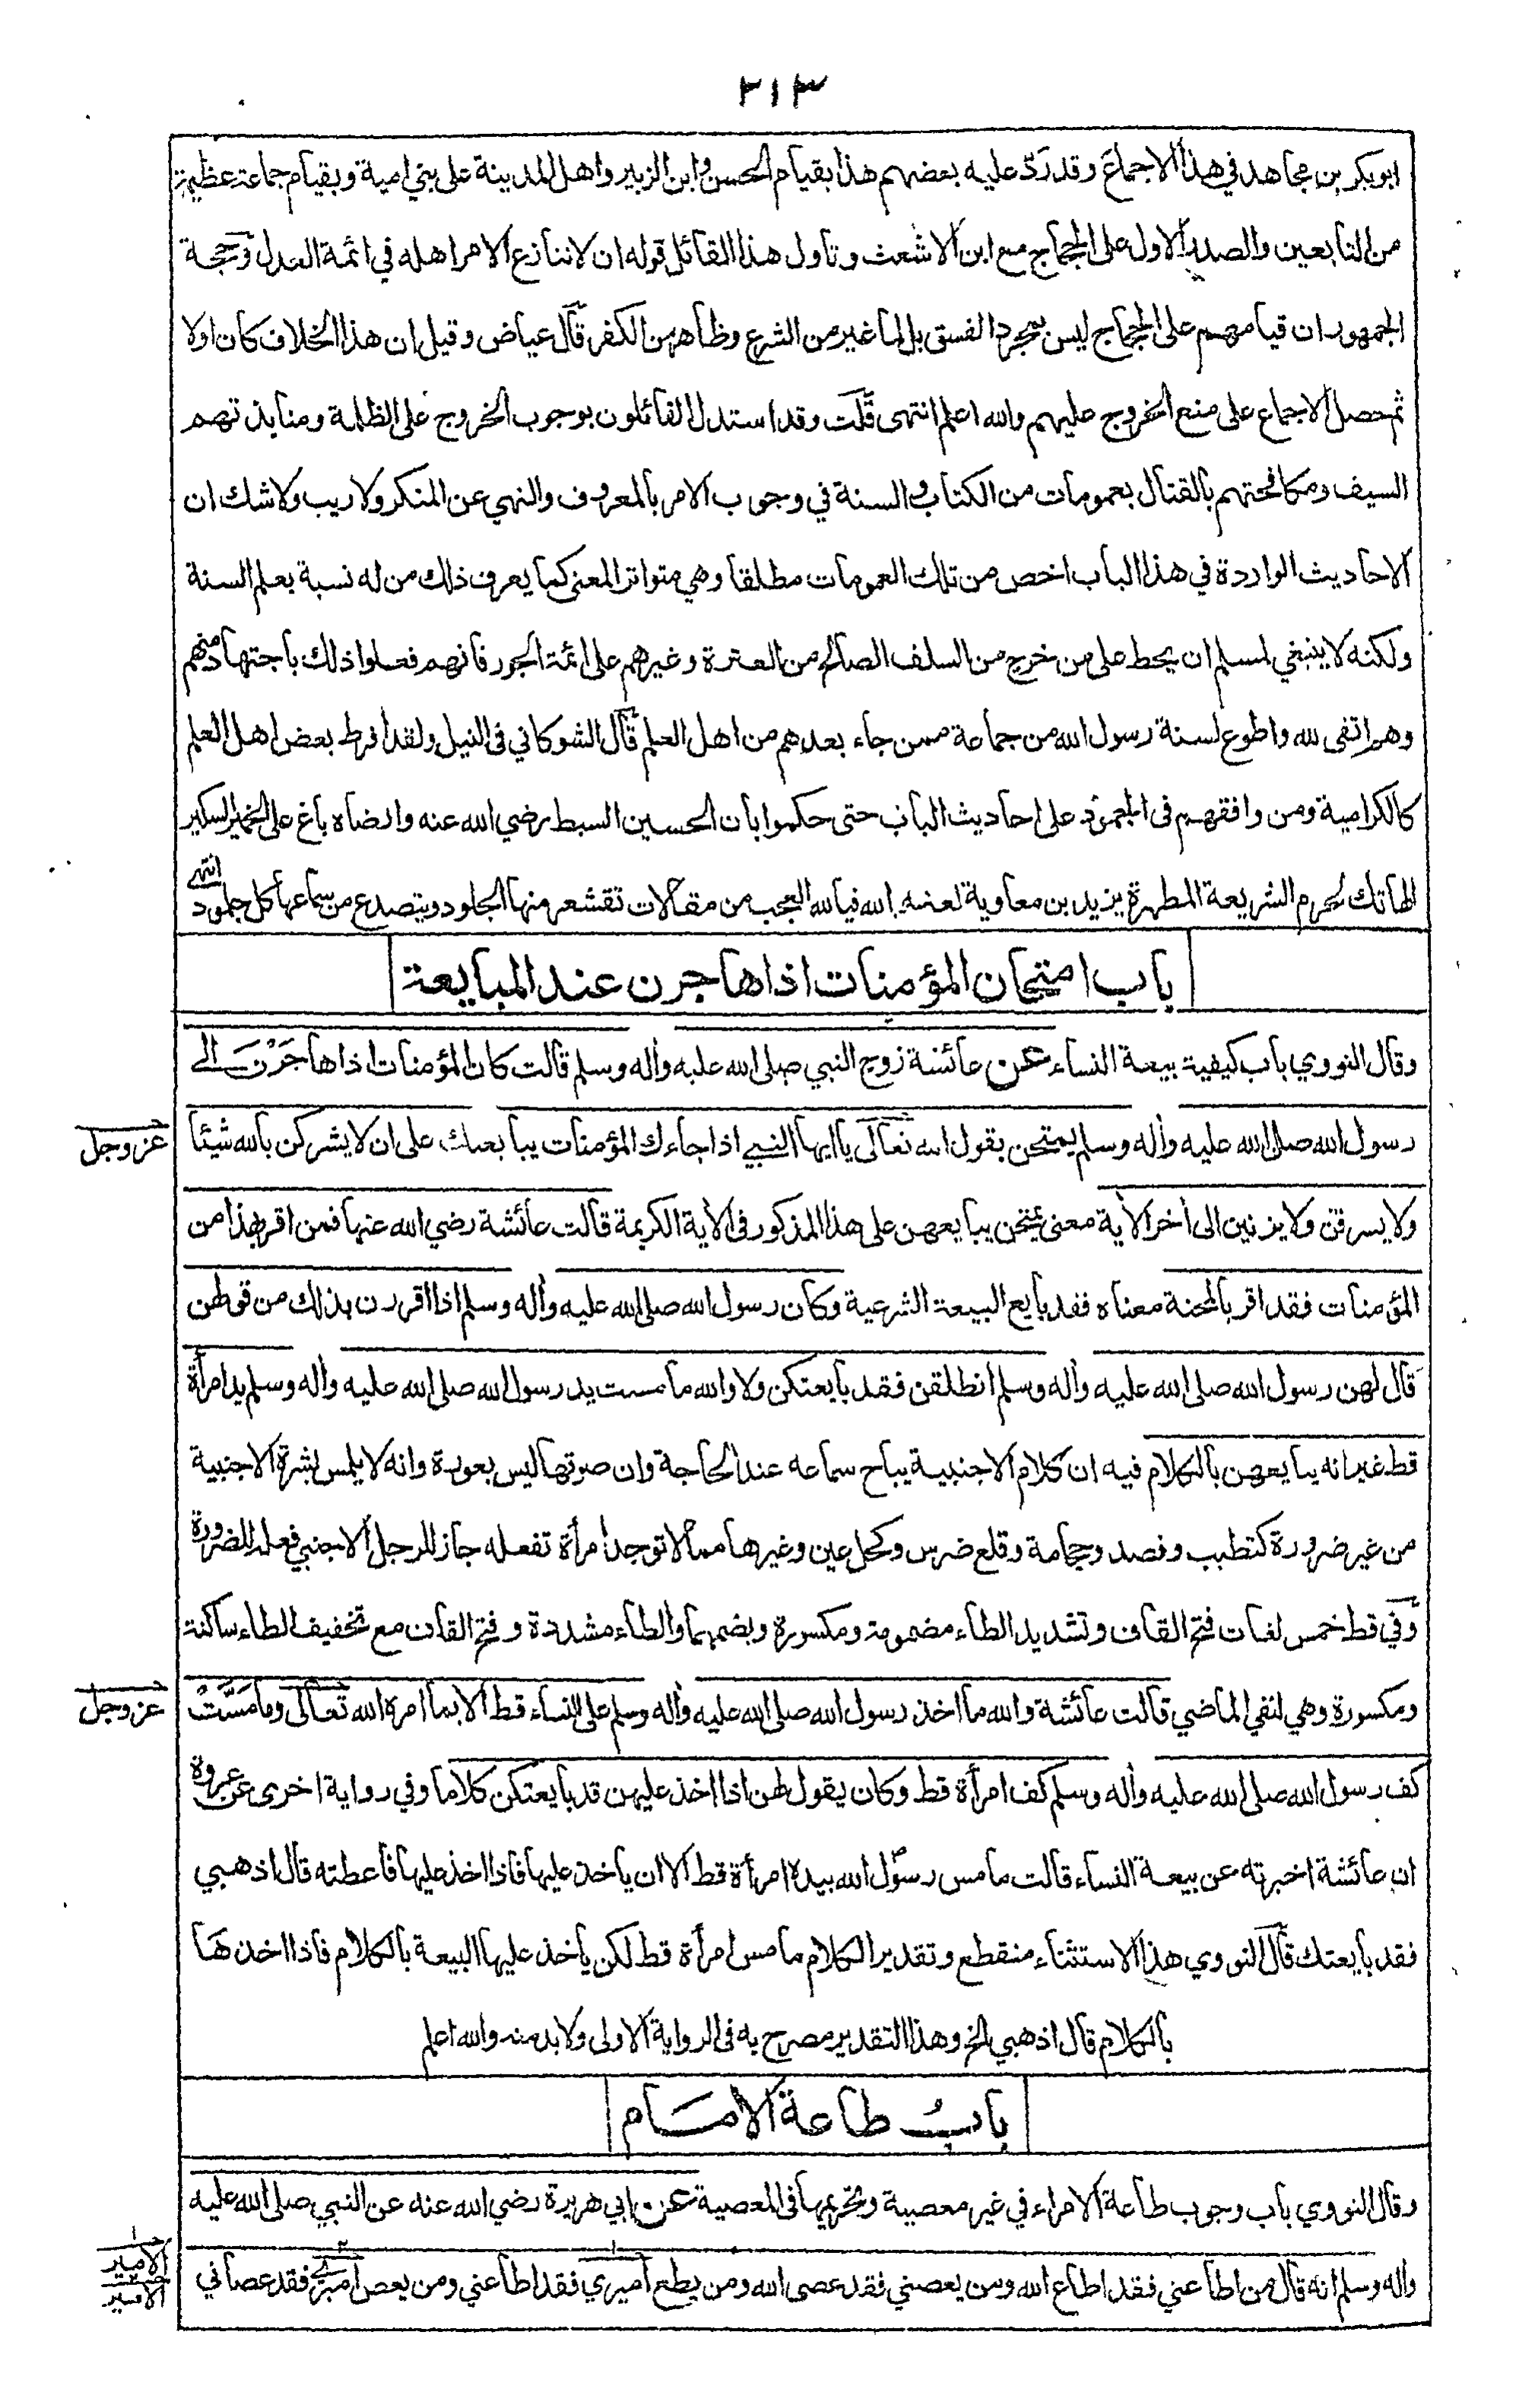 ٢١٣
ابو بكر بن مجاهد في هذا الاجماع وقد ردّ عليه بعضهم هذا بقيام الحسن وابن الزبير واهل المدينة على بني امية وبقيام جماعة عظيمة
من التابعين والصدر الاول على الحجاج مع ابن الاشعث وتاول هذا القائل قوله ان لا ننازع الامر اهله في ائمة العدل وحجة
الجمهور ان قيامهم على الحجاج ليس بمجرد الفسق بل لما غير من الشرع وظاهر من الكفر قال عياض وقيل ان هذا الخلاف كان اولا
ثم حصل الاجماع على منع الخروج عليهم والله اعلم انتهى قلت وقد استدل القائلون بوجوب الخروج على الظلمة ومنابذتهم
السيف ومكافحتهم بالقتال بعمومات من الكتاب والسنة في وجوب الامر بالمعروف والنهي عن المنكر ولا ريب ولا شك ان
الاحاديث الواردة في هذا الباب اخص من تلك العمومات مطلقا وهي متواتر المعنى كما يعرف ذلك من له نسبة بعلم السنة
ولكنه لا ينبغي لمسلم ان يحط على من خرج من السلف الصالح من العترة وغيرهم على ائمة الجور فانهم فعلوا ذلك باجتهاد منهم
وهم اتقى لله واطوع لسنة رسول الله من جماعة ممن جاء بعدهم من اهل العلم قال الشوكاني في النيل ولقد افرط بعض اهل العلم
كالكرامية ومن وافقهم في الجمود على احاديث الباب حتى حكموا بان الحسين السبط رضي الله عنه وارضاه باغ على الخمير السكير
الهاتك لحرم الشريعة المطهرة يزيد بن معاوية لعنه الله فيا لله العجب من مقالات تقشعر منها الجلود ويتصدع من سماعها كل جلمود انتهى
باب امتحان المؤمنات اذا هاجرن عند المبايعة
وقال النووي باب كيفية بيعة النساء عن عائشة زوج النبي صلى الله عليه واٰله وسلم قالت كان المؤمنات اذا هاجَرْنَ الى
رسول الله صلى الله عليه واٰله وسلم يمتحن بقول الله تعالى يا ايها النبي اذا جاءك المؤمنات يبايعنك على ان لا يشركن بالله شيئا
عز وجل
ولا يسرقن ولا يزنين الى اٰخر الاٰية معنى يمتحن يبايعهن على هذا المذكور في الاٰية الكريمة قالت عائشة رضي الله عنها فمن اقر بهذا من
المؤمنات فقد اقر بالمحنة معناه فقد بايع البيعة الشرعية وكان رسول الله صلى الله عليه واٰله وسلم اذا اقررن بذلك من قولهن
قال لهن رسول الله صلى الله عليه واٰله وسلم انطلقن فقد بايعتكن ولا والله ما مست يد رسول الله صلى الله عليه واٰله وسلم يد امرأة
قط غير انه يبايعهن بالكلام فيه ان كلام الاجنبية يباح سماعه عند الحاجة وان صوتها ليس بعورة وانه لا يلمس بشرة الاجنبية
من غير ضرورة كتطبب وفصد وحجامة وقلع ضرس وكحل عين وغيرها مما لا توجد امرأة تفعله جاز للرجل الاجنبي فعله للضرورة
وفي قط خمس لغات فتح القاف وتشديد الطاء مضمومة ومكسورة وبضمهما والطاء مشددة وفتح القاف مع تخفيف الطاء ساكنة
ومكسورة وهي لنفي الماضي قالت عائشة والله ما اخذ رسول الله صلى الله عليه واٰله وسلم على النساء قط الا بما امره الله تعالى وما مَسَّتْ
عز وجل
كف رسول الله صلى الله عليه واٰله وسلم كف امرأة قط وكان يقول لهن اذا اخذ عليهن قد بايعتكن كلاما وفي رواية اخرى عن عروة
ان عائشة اخبرته عن بيعة النساء قالت ما مس رسول الله بيده امرأة قط الا ان ياخذ عليها فاذا اخذ عليها فاعطته قال اذهبي
فقد بايعتك قال النووي هذا الاستثناء منقطع وتقدير الكلام ما مس امرأة قط لكن ياخذ عليها البيعة بالكلام فاذا اخذها
بالكلام قال اذهبي الخ وهذا التقدير مصرح به في الرواية الاولى ولا بد منه والله اعلم
بابُ طاعة الامام
وقال النووي باب وجوب طاعة الامراء في غير معصية وتحريمها في المعصية عن ابي هريرة رضي الله عنه عن النبي صلى الله عليه
واٰله وسلم انه قال من اطاعني فقد اطاع الله ومن يعصني فقد عصى الله ومن يطع اميري فقد اطاعني ومن يعص اميري فقد عصاني
الامير
الامير